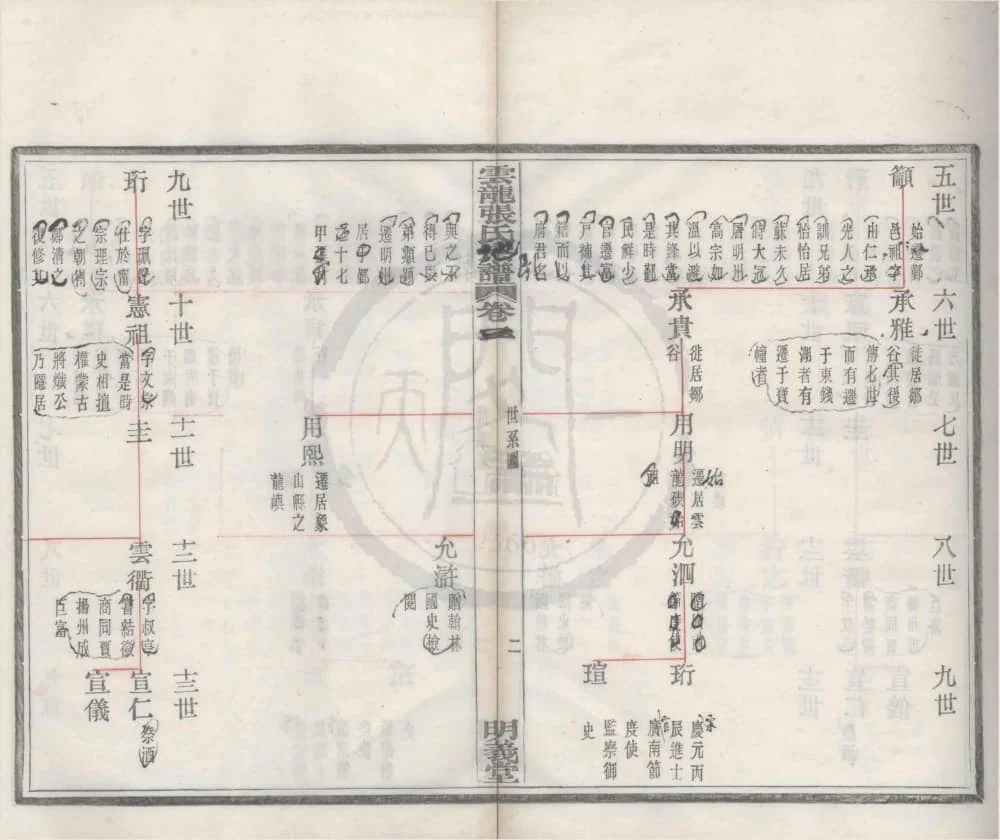 五世
籲
始遷鄞
邑祖字
由仁承
先人之
訓兄弟
怡怡居
蘇未久
值大冦
唐明州
高宗如
溫以避
其鋒當
是時鄞
民鮮少
官遷富
戶補其
籍而以
府君名
六世
承雅
徙居鄒
谷其後
傳七世
而有遷
于東錢
湖者有
遷于寶
幢者
承貴
徙居鄒
谷
七世
用明
始遷居雲
龍碶始
祖
八世
允泗
節度使
九世
珩
慶元丙
辰進士
廣南節
度使
瑄
監察御
史
雲龍張氏譜卷二
世系圖
二
明義堂
與之不
得已以
弟類題
還明州
居鄞
之十七
甲
用熙
遷居象
山縣之
龍嶼
允滸
贈翰林
國史檢
閱
九世
珩
字珮
仕於甯
宗理宗
之朝
鄭清之
復修其
十世
憲祖
字文宗
當是時
史相擅
權蒙古
將熾公
乃隱居
十一世
圭
十二世
雲衢
字叔亨
曾結徽
商同賈
揚州成
巨富
十三世
宣仁
祭酒
宣儀